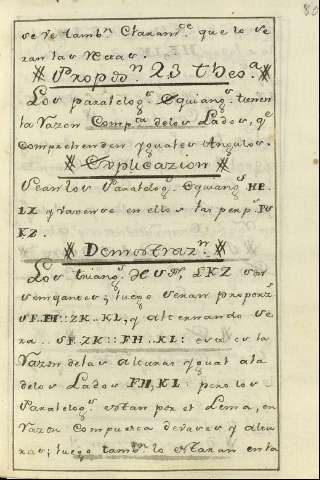 se ve tambⁿ Claramᵗᵉ que lo se
ran las
Propoⁿ 23 Theoᵃ
Los paralelogˢ Equiangˢ tienen
la Razon Compᵗᵃ delos Lados, qᵉ
comprehenden yguales Angulos.
Explicazion
Sean los Paralelogˢ Equiangˢ HE
LX y tirense en ellos las perpˢ
KZ.
Demostrazⁿ
Los triangˢ LKZ son
semejantes; luego seran proporzˢ
SF.FH::ZK..KL, y alternando se
ra..SF.ZK::FH..KL: esa es la
Razon delas alturas ygual ala
delos Lados FH, KL: pero los
Paralelogˢ estan por el Lema, en
Razon Compuesta de vases y altu
ras; luego tambⁿ lo estaran en la